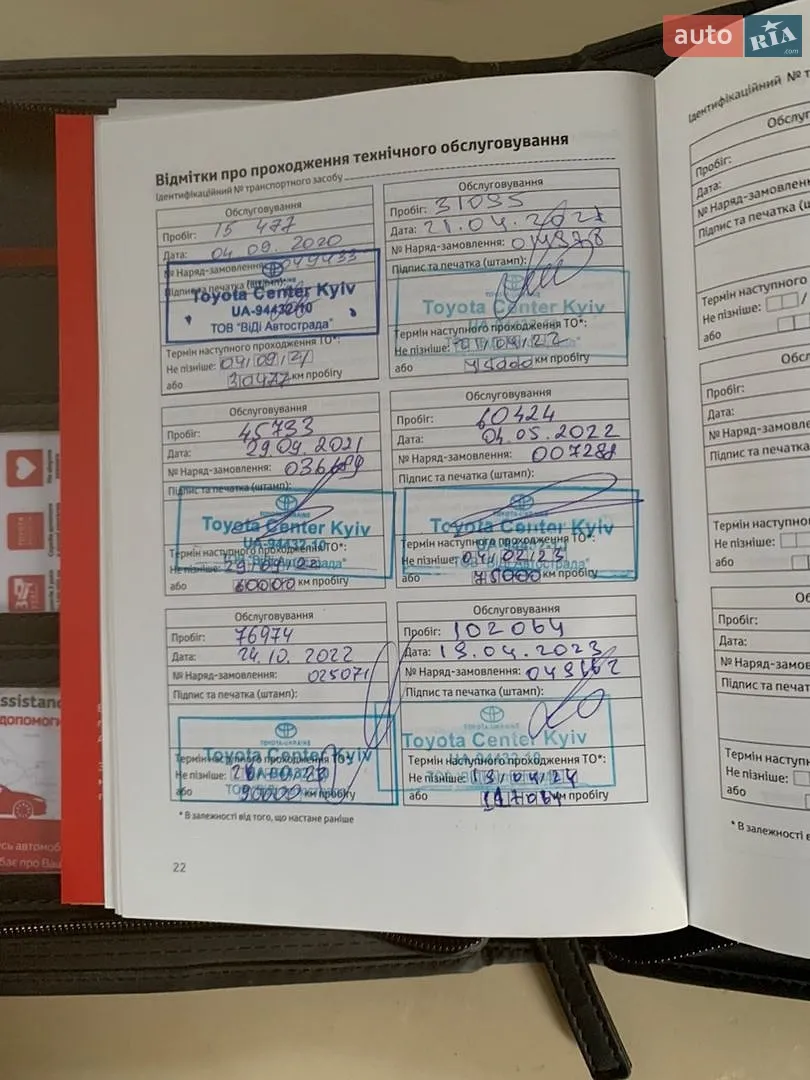 auto RIA .com
Відмітки про проходження технічного обслуговування
Ідентифікаційний № транспортного засобу
Обслуговування
Пробіг: 15 477
Дата: 04 09. 2020
№ Наряд-замовлення: 049433
Підпис та печатка (штамп):
Toyota Center Kyiv
UA-94432-10
ТОВ "ВіДі Автострада"
Термін наступного проходження ТО*:
Не пізніше: 04/09/21
або 30477 км пробігу
Обслуговування
Пробіг: 31035
Дата: 21.04.2021
№ Наряд-замовлення: 014378
Підпис та печатка (штамп):
Toyota Center Kyiv
Термін наступного проходження ТО*:
Не пізніше:
або 45000 км пробігу
Обслуговування
Пробіг: 45733
Дата: 29.09.2021
№ Наряд-замовлення:
Підпис та печатка (штамп):
TOYOTA-UKRAINE
Toyota Center Kyiv
UA-94432-10
Термін наступного проходження ТО*:
Не пізніше:
ТОВ "ВіДі Автострада"
або 60000 км пробігу
Обслуговування
Пробіг: 60424
Дата: 04.05.2022
№ Наряд-замовлення: 007288
Підпис та печатка (штамп):
TOYOTA-UKRAINE
Toyota Center Kyiv
Термін наступного проходження ТО*:
Не пізніше: 04/02/23
або 75000 км пробігу
Обслуговування
Пробіг: 76974
Дата: 24.10.2022
№ Наряд-замовлення: 025071
Підпис та печатка (штамп):
TOYOTA-UKRAINE
Toyota Center Kyiv
Термін наступного проходження ТО*:
Не пізніше:
або 90000 км пробігу
Обслуговування
Пробіг: 102064
Дата: 13.04.2023
№ Наряд-замовлення:
Підпис та печатка (штамп):
TOYOTA-UKRAINE
Toyota Center Kyiv
UA-94432-10
Термін наступного проходження ТО*:
Не пізніше: 13/04/24
або 117064 км пробігу
* В залежності від того, що настане раніше
22
Ідентифікаційний № т
Обслуг
Пробіг:
Дата:
№ Наряд-замовлен
Підпис та печатка (ш
Термін наступного
Не пізніше:
або
Обсл
Пробіг:
Дата:
№ Наряд-замовле
Підпис та печатка
Термін наступно
Не пізніше:
або
Об
Пробіг:
Дата:
№ Наряд-замо
Підпис та печат
Термін наступн
Не пізніше:
або
* В залежності в
ssistan
допомоги
сь автомоб
бає про Ваш